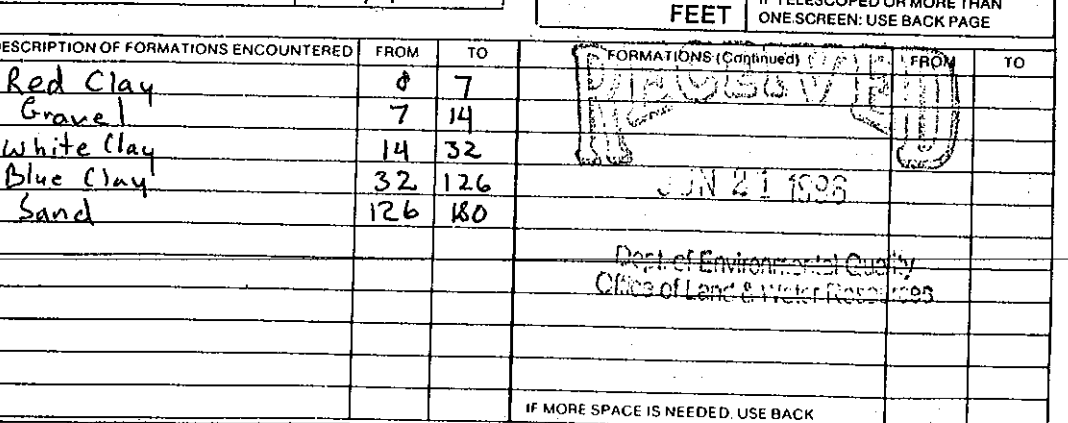 FEET
IF TELESCOPED OR MORE THAN
ONE SCREEN: USE BACK PAGE
DESCRIPTION OF FORMATIONS ENCOUNTERED FROM TO
Red Clay 0 7
Gravel 7 14
White Clay 14 32
Blue Clay 32 126
Sand 126 180
FORMATIONS (Continued) FROM TO
RECEIVED
JUN 21 1996
Dept. of Environmental Quality
Office of Land & Water Resources
IF MORE SPACE IS NEEDED, USE BACK